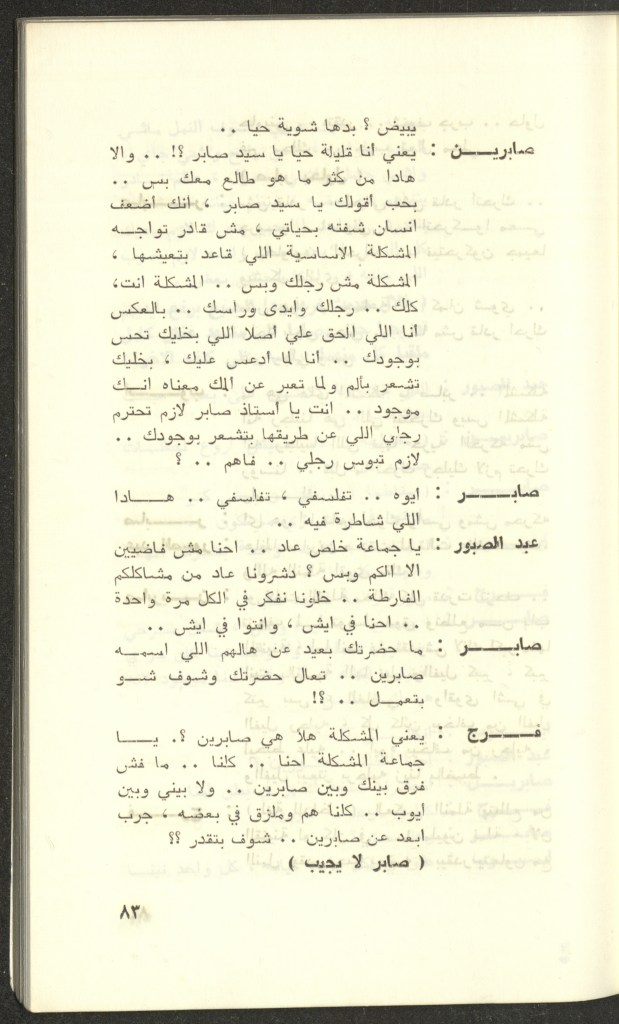 يبيض ؟ بدها شوية حيا ..
صابريــن : يعني أنا قليلة حيا يا سيد صابر ؟! .. والا
هادا من كثر ما هو طالع معك بس ..
بحب أقولك يا سيد صابر ، انك أضعف
انسان شفته بحياتي ، مش قادر تواجــه
المشكلة الاساسية اللي قاعد بتعيشها ،
المشكلة مش رجلك وبس .. المشكلة انت،
كلك .. رجلك وايدى وراسك .. بالعكس
أنا اللي الحق علي أصلا اللي بخليك تحس
بوجودك .. أنا لما ادعس عليك ، بخليك
تشعر بألم ولما تعبر عن المك معناه انــك
موجود .. انت يا أستاذ صابر لازم تحترم
رجلي اللي عن طريقها بتشعر بوجودك ..
لازم تبوس رجلي .. فاهم .. ؟
صابــــر : ايوه .. تفلسفي ، تفلسفي .. هــــادا
اللي شاطرة فيه ..
عبد الصبور : يا جماعة خلص عاد .. احنا مش فاضيين
الا الكم وبس ؟ دشرونا عاد من مشاكلكم
الفارطة .. خلونا نفكر في الكل مرة واحدة
.. احنا في ايش ، وانتوا في ايش ..
صابــــر : ما حضرتك بعيد عن هالهم اللي اسمــه
صابرين .. تعال حضرتك وشوف شــو
بتعمــل .. ؟!
فــــرج : يعني المشكلة هلأ هي صابرين ؟. يــــا
جماعة المشكلة احنا .. كلنا .. ما فش
فرق بينك وبين صابرين .. ولا بيني وبين
أيوب .. كلنا هم وملزق في بعضه ، جرب
ابعد عن صابرين .. شوف بتقدر ؟؟
( صابر لا يجيب )
٨٣